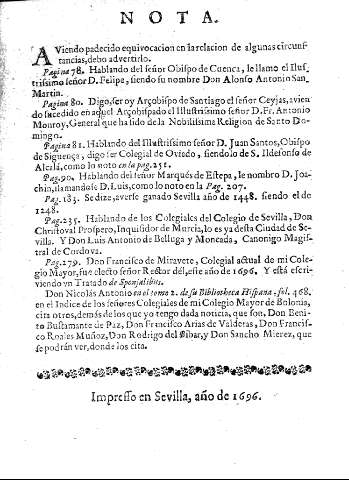 NOTA.
AViendo padecido equivocacion en la relacion de algunas circunſ-
tancias, debo advertirlo.
Pagina 78. Hablando del ſeñor Obiſpo de Cuenca, le llamo el Iluſ-
triſsimo ſeñor D. Felipe, ſiendo ſu nombre Don Alonſo Antonio San
Martin.
Pagina 80. Digo, ſer oy Arçobiſpo de Santiago el ſeñor Ceyjas, avien
do ſucedido en aquel Arçobiſpado el Illuſtriſsimo ſeñor D. Fr. Antonio
Monroy, General que ha ſido de la Nobiliſsima Religion de Santo Do-
mingo.
Pagina 81. Hablando del Illuſtriſsimo ſeñor D. Juan Santos, Obiſpo
de Siguença, digo ſer Colegial de Oviedo, ſiendolo de S. Ildefonſo de
Alcalà, como lo noto en la pag. 251.
Pag. 90. Hablando del ſeñor Marquès de Eſtepa, le nombro D. Joa-
chin, llamandoſe D. Luis, como lo noto en la Pag. 207.
Pag. 185. Se dize, averſe ganado Sevilla año de 1448. ſiendo el de
1248.
Pag. 235. Hablando de los Colegiales del Colegio de Sevilla, Don
Chriſtoval Proſpero, Inquiſidor de Murcia, lo es ya deſta Ciudad de Se-
villa. Y Don Luis Antonio de Belluga y Moncada, Canonigo Magiſ-
tral de Cordova.
Pag. 279. Don Franciſco de Miravete, Colegial actual de mi Cole-
gio Mayor, fue electo ſeñor Rector dèl, eſte año de 1696. Y eſtà eſcri-
viendo vn Tratado de Sponſalibus.
Don Nicolàs Antonio en el tomo 2. de ſu Bibliotheca Hiſpana, fol. 468.
en el Indice de los ſeñores Colegiales de mi Colegio Mayor de Bolonia,
cita otros, demàs de los que yo tengo dada noticia, que ſon, Don Beni-
to Buſtamante de Paz, Don Franciſco Arias de Valderas, Don Franciſ-
co Roales Muñoz, Don Rodrigo del Bibar, y Don Sancho Mierez, que
ſe podràn ver, donde los cita.
Impreſſo en Sevilla, año de 1696.